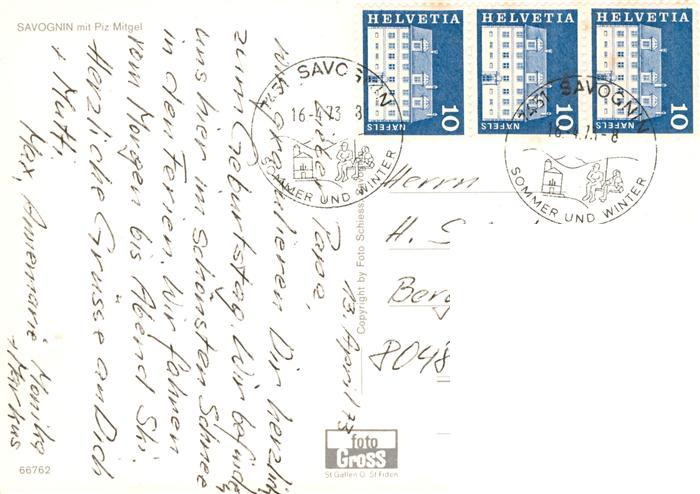 SAVOGNIN mit Piz Mitgel
13. April 73
Lieber Papa,
wir gratulieren Dir herzlich
zum Geburtstag. Wir befinden
uns hier im schönsten Schnee
in den Ferien. Wir fahren
vom Morgen bis Abend Ski.
Herzliche Grüsse an Dich
+ Mutti,
Max, Annemarie Monika
+ Markus
66762
Copyright by Foto Schiess
foto
Gross
St Gallen O. St Fiden
HELVETIA
10
NÄFELS
HELVETIA
10
NÄFELS
HELVETIA
10
NÄFELS
7451 SAVOGNIN
16-4.73
SOMMER UND WINTER
7451 SAVOGNIN
SOMMER UND WINTER
Herrn
H.
Berg
8048